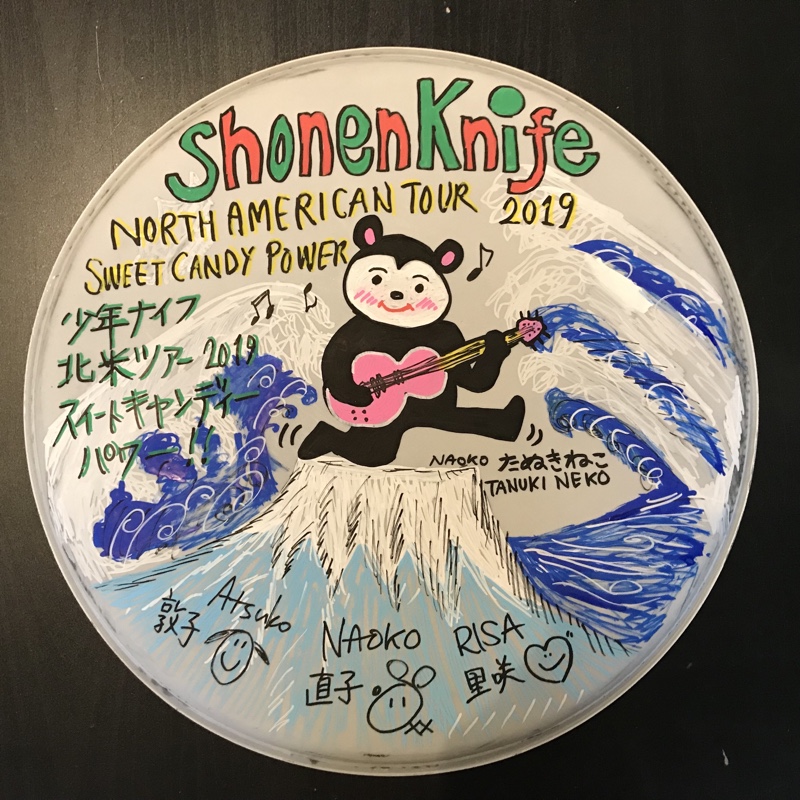 Shonen Knife
NORTH AMERICAN TOUR 2019
SWEET CANDY POWER
少年ナイフ
北米ツアー 2019
スイートキャンディー
パワー!!
NAOKO たぬきねこ
TANUKI NEKO
敦子 Atsuko
NAOKO
直子
RISA
里咲